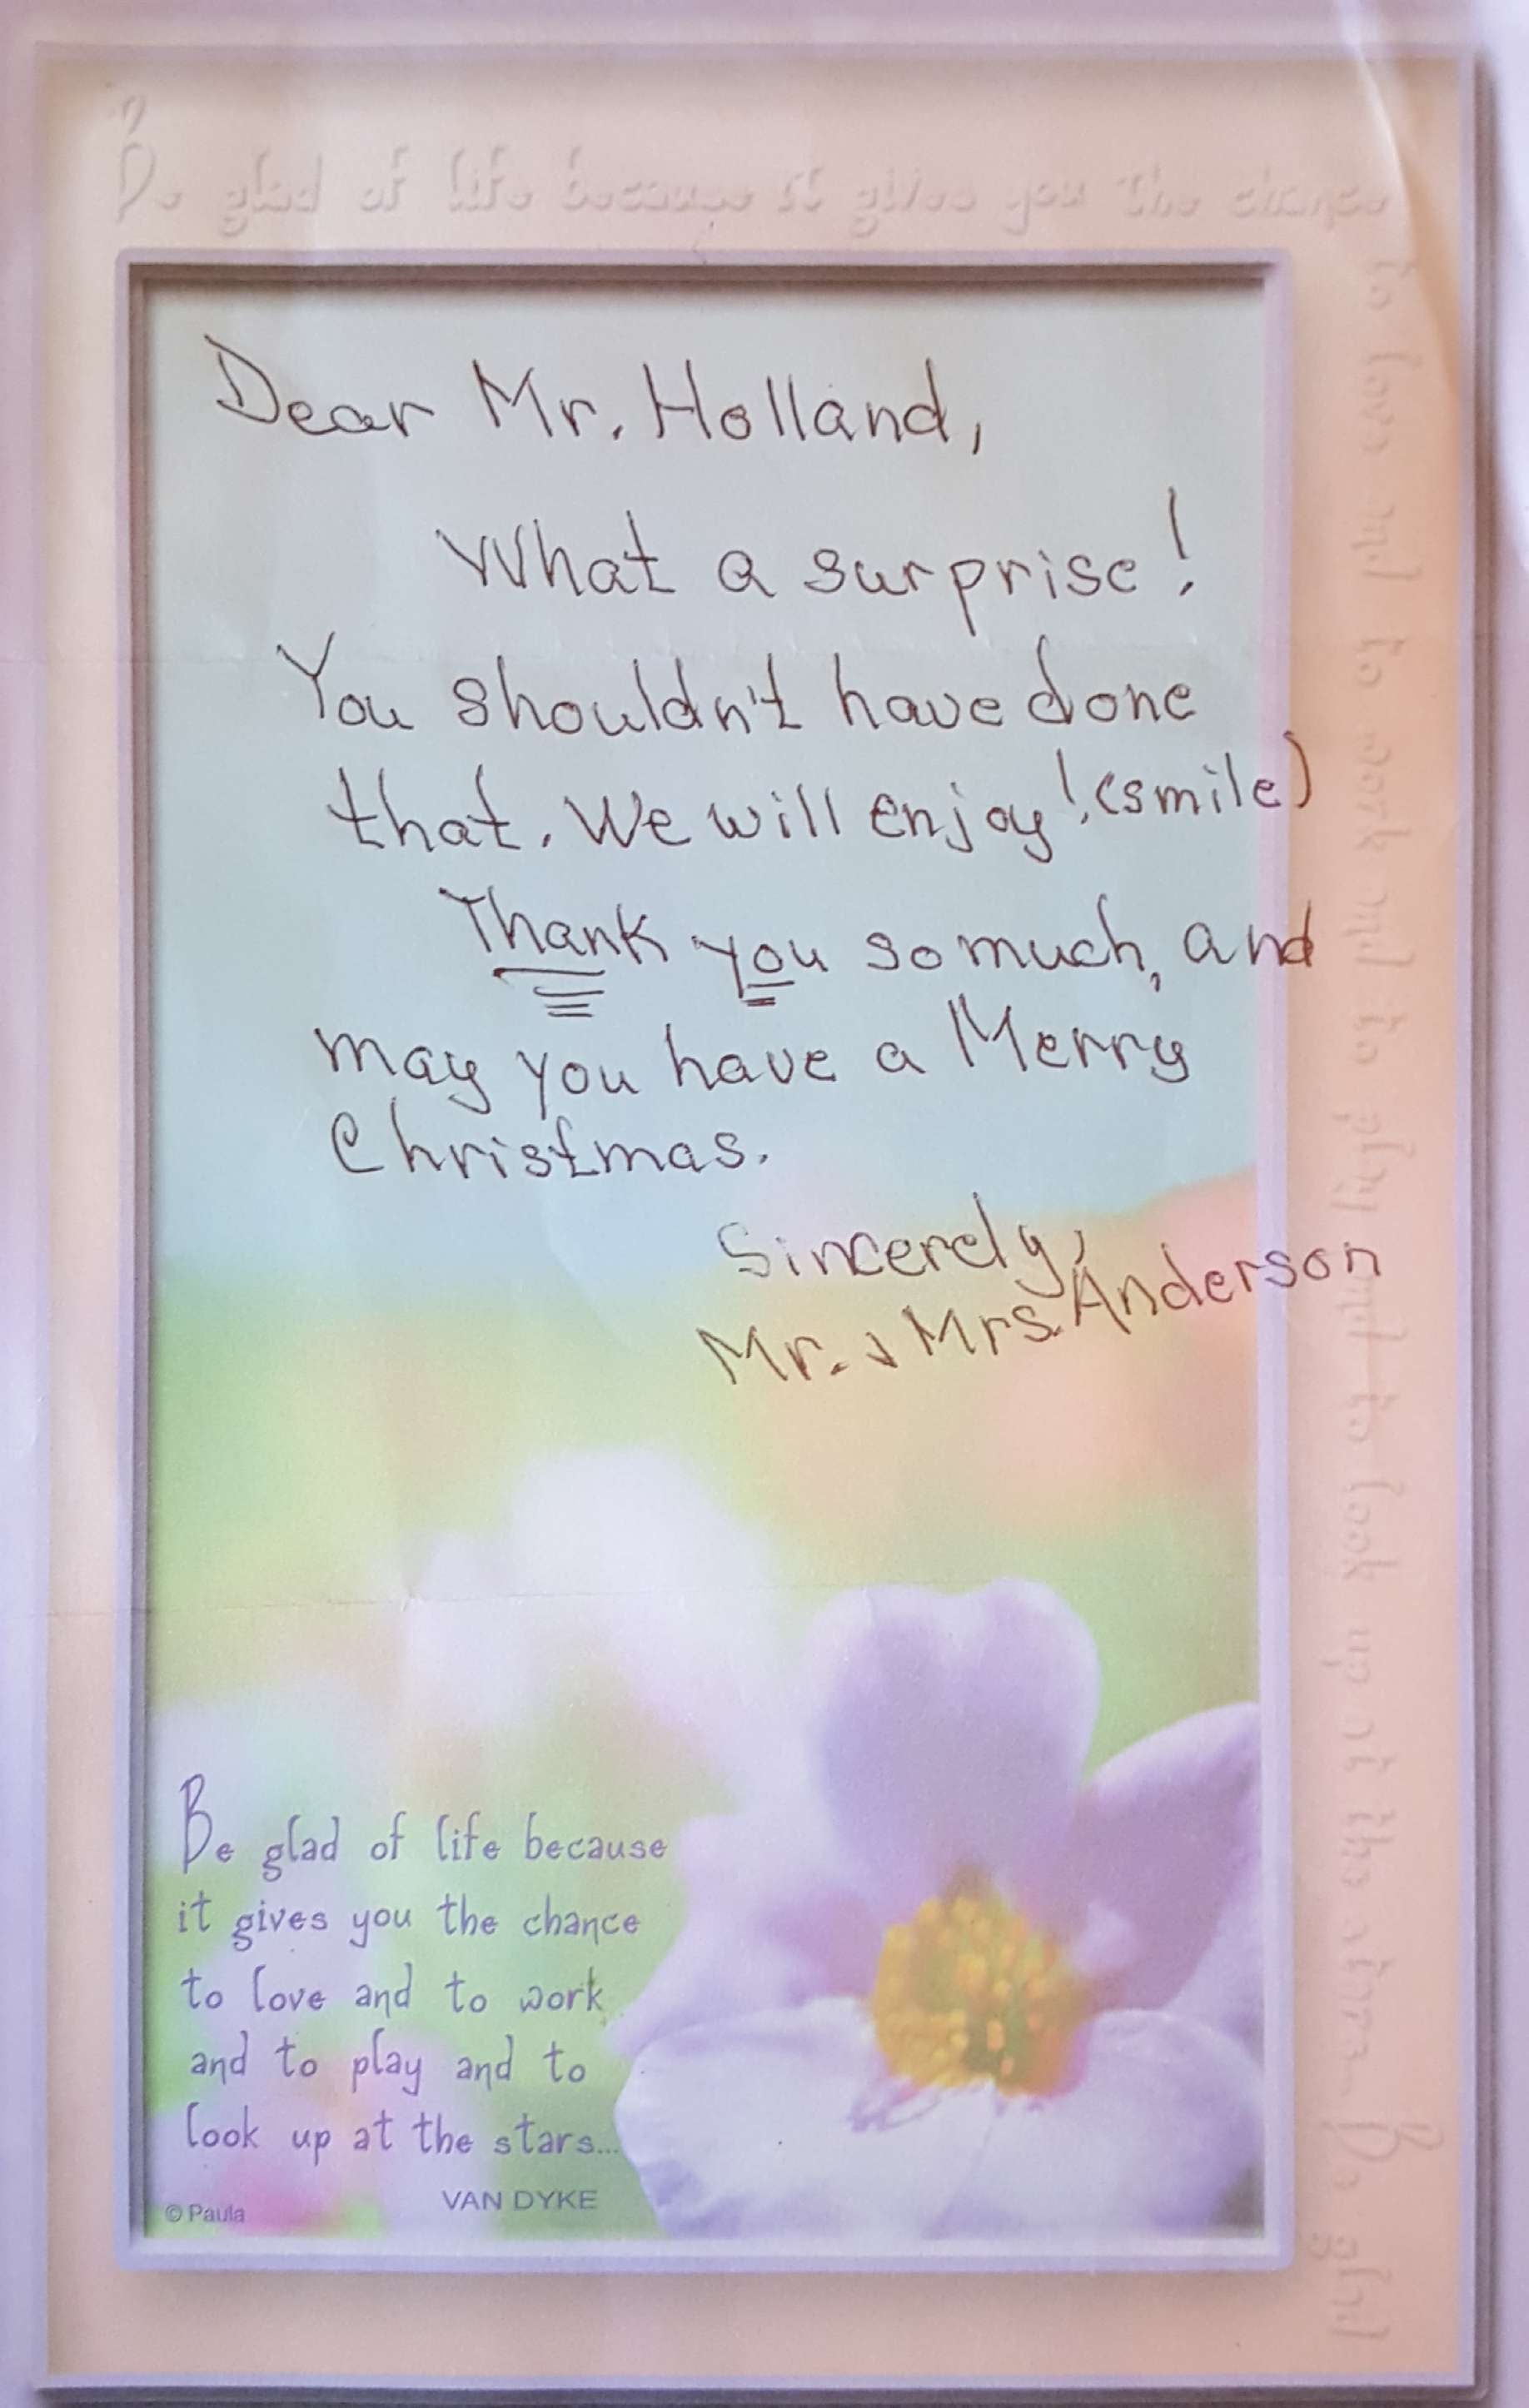 Be glad of life because it gives you the chance
to love and to work and to play and to look up at the stars... Be glad
Dear Mr. Holland,
What a surprise!
You shouldn't have done
that. We will enjoy! (smile)
Thank you so much, and
may you have a Merry
Christmas.
Sincerely,
Mr. & Mrs. Anderson
Be glad of life because
it gives you the chance
to love and to work
and to play and to
look up at the stars...
VAN DYKE
© Paula